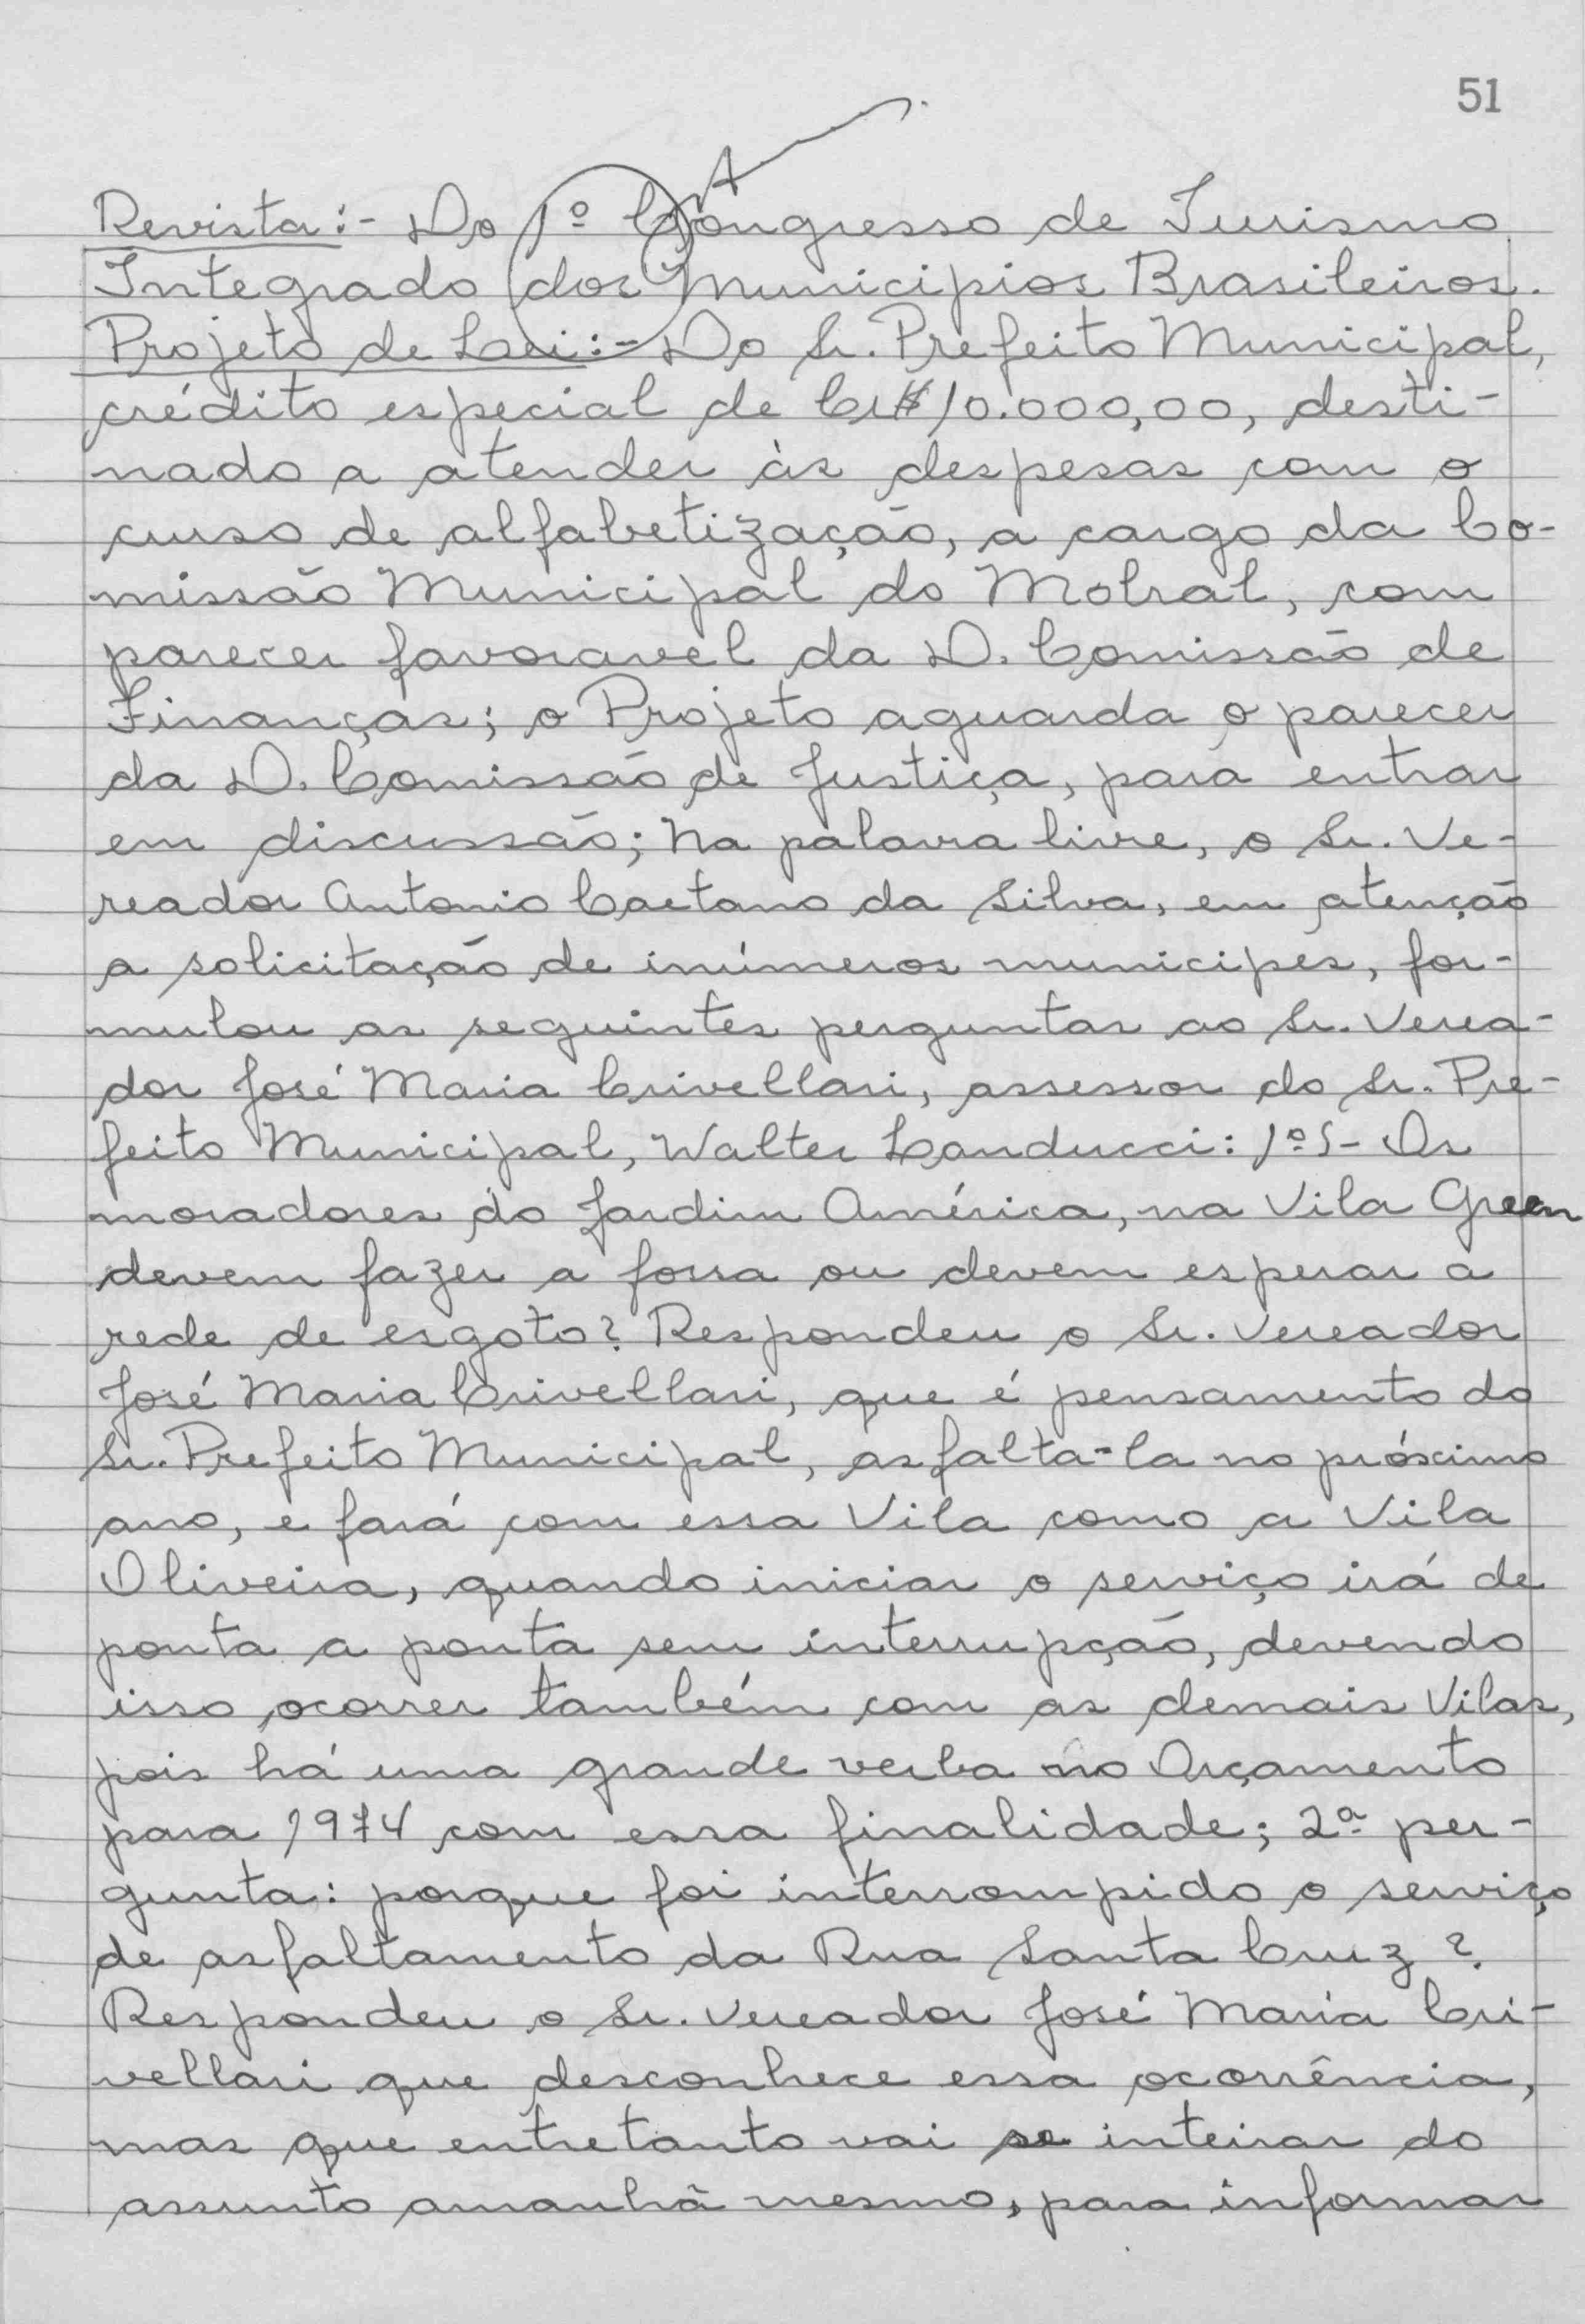 51
Revista:- Do 1º Congresso de Turismo
Integrado dos Municipios Brasileiros.
Projeto de Lei:- Do Sr. Prefeito Municipal,
crédito especial de Cr$10.000,00, desti-
nado a atender às despesas com o
curso de alfabetização, a cargo da Co-
missão Municipal do Mobral, com
parecer favoravel da D. Comissão de
Finanças; o Projeto aguarda o parecer
da D. Comissão de Justiça, para entrar
em discussão; Na palavra livre, o Sr. Ve-
reador Antonio Caetano da Silva, em atenção
a solicitação de inúmeros municipes, for-
mulou as seguintes perguntas ao Sr. Verea-
dor José Maria Crivellari, assessor do Sr. Pre-
feito Municipal, Walter Landucci: 1º)- Os
moradores do Jardim América, na Vila Green
devem fazer a fossa ou devem esperar a
rede de esgoto? Respondeu o Sr. Vereador
José Maria Crivellari, que é pensamento do
Sr. Prefeito Municipal, asfalta-la no próximo
ano, e fará com essa Vila como a Vila
Oliveira, quando iniciar o serviço irá de
ponta a ponta sem interrupção, devendo
isso ocorrer também com as demais Vilas,
pois há uma grande verba no Orçamento
para 1974 com essa finalidade; 2ª per-
gunta: porque foi interrompido o serviço
de asfaltamento da Rua Santa Cruz?
Respondeu o Sr. Vereador José Maria Cri-
vellari que desconhece essa ocorrência,
mas que entretanto vai se inteirar do
assunto amanhã mesmo, para informar